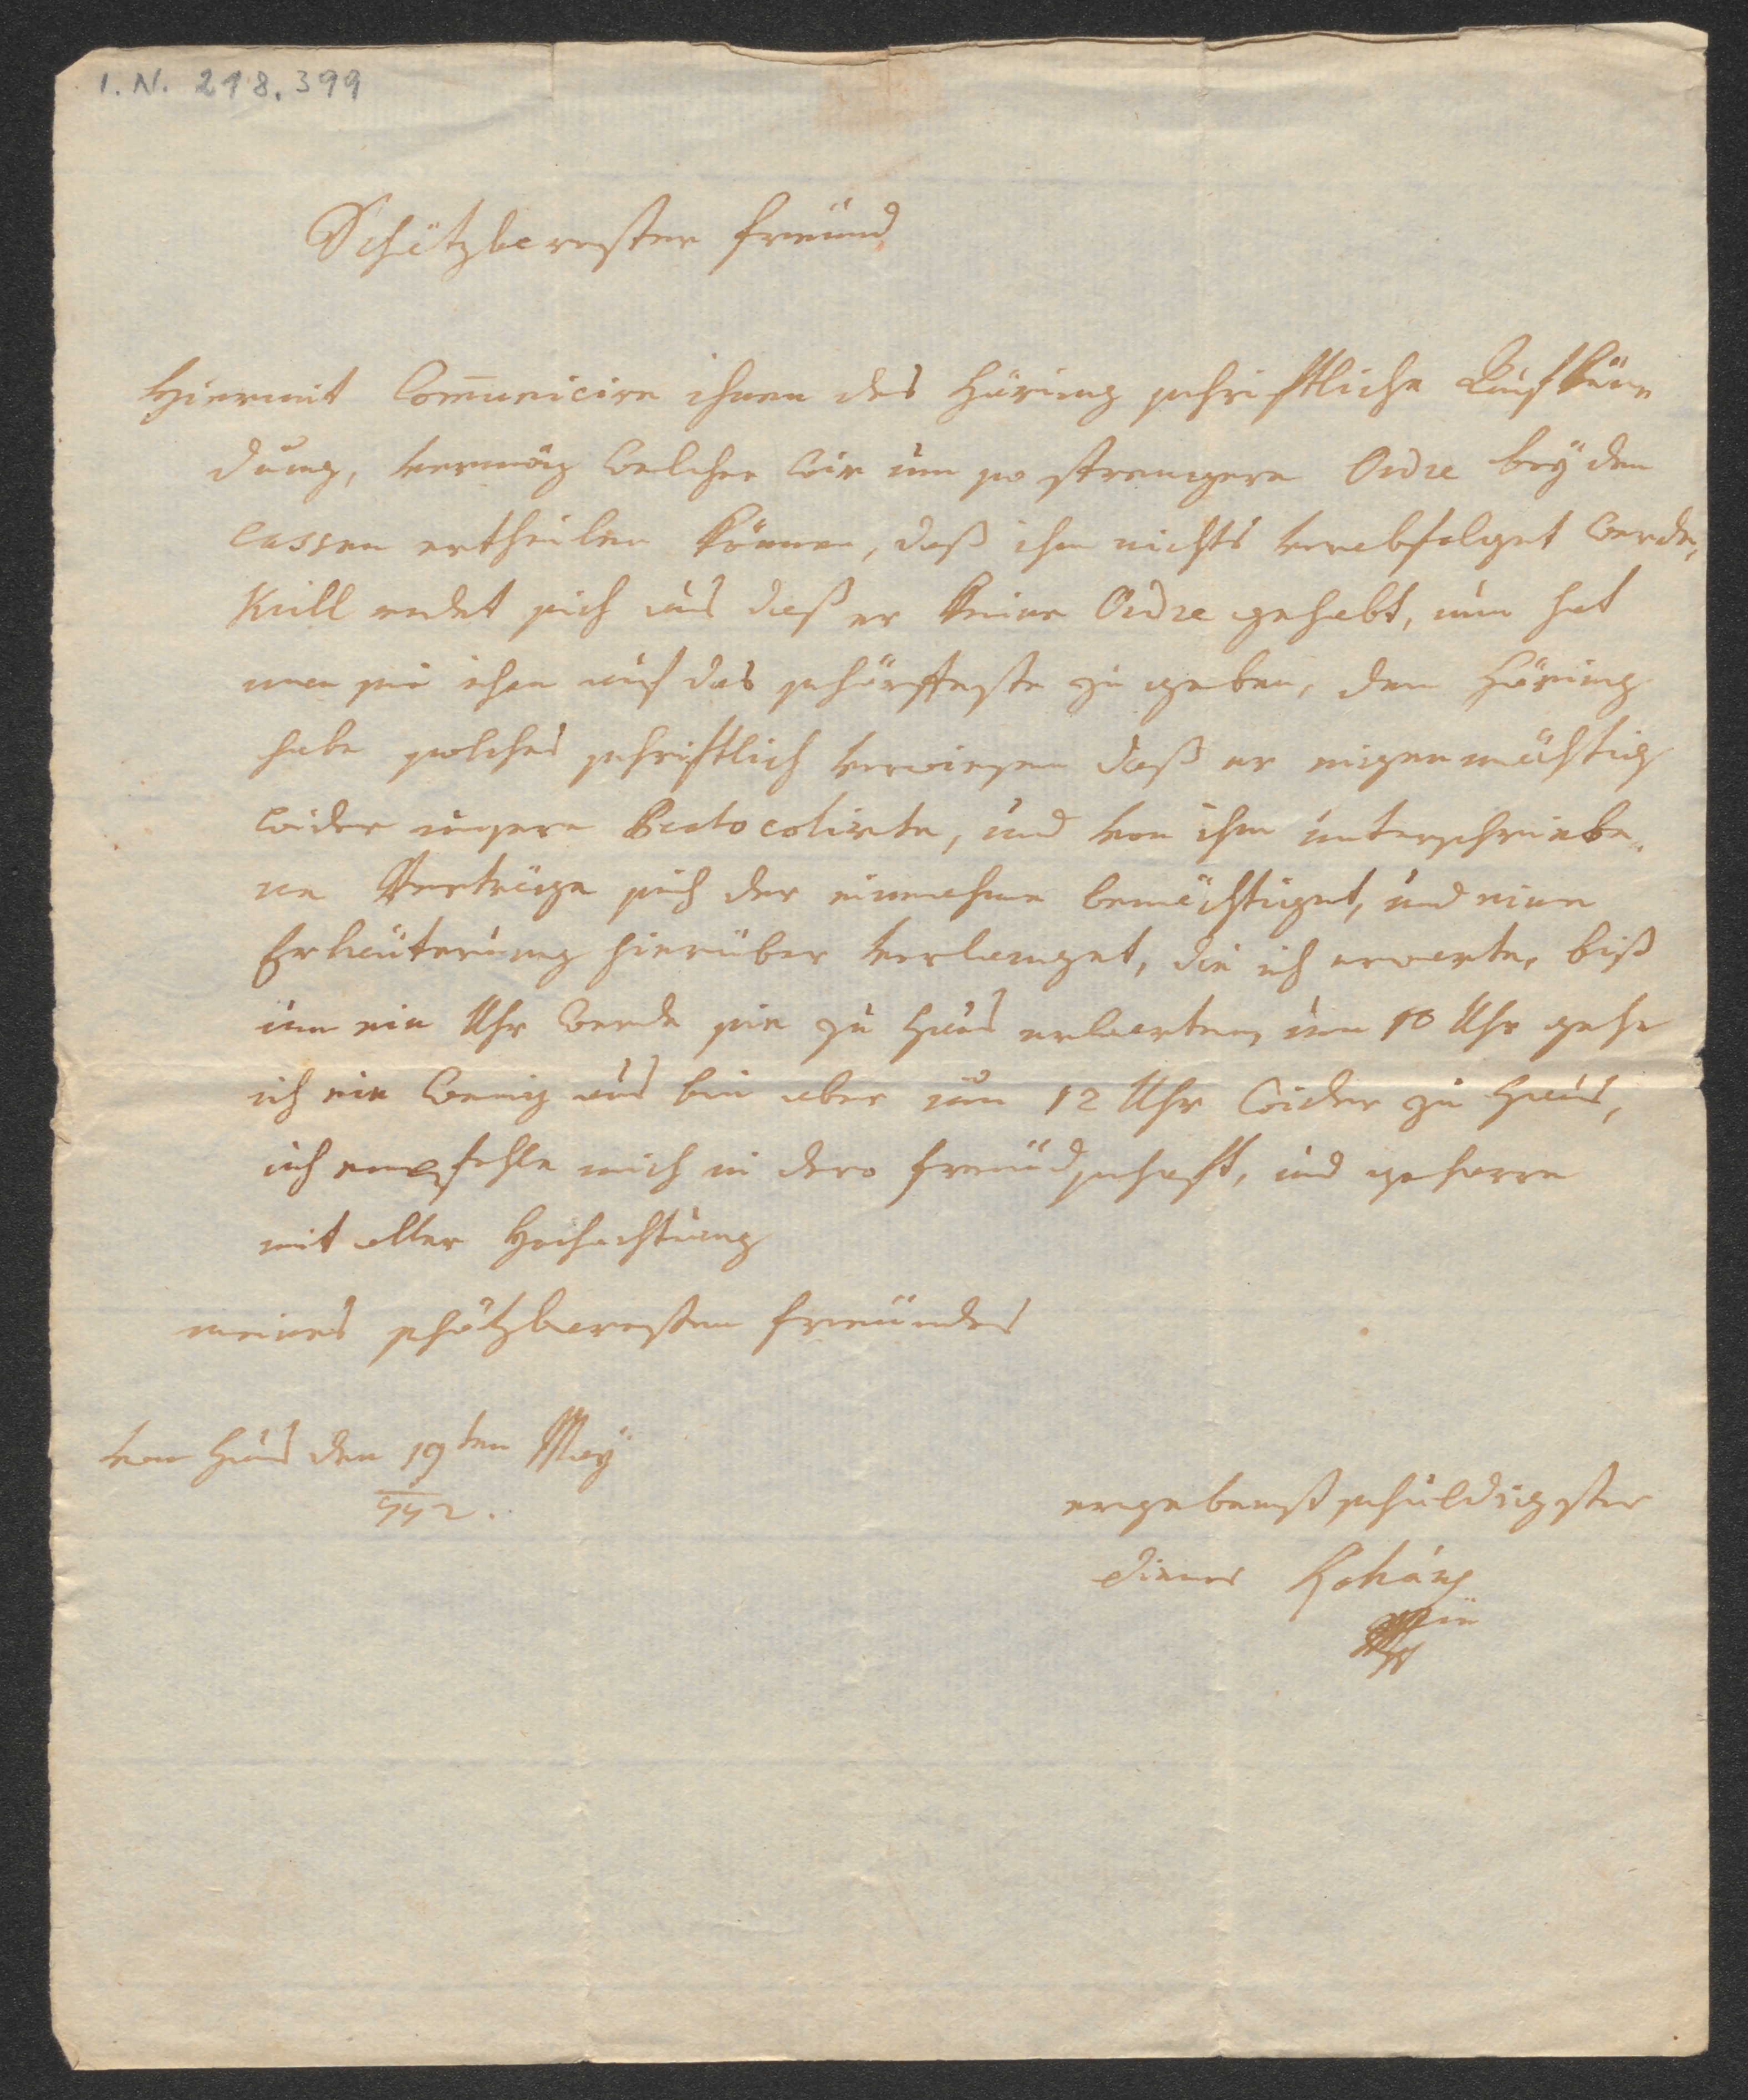 I. N. 218.399
Schätzbarester freünd
Hiermit Com̅unicire ihnen des Häring schriftliche Aufkün
dung, vermög welcher wir um so strengere Ordre beÿ den
Cassen ertheilen können, daß ihm nichts verabfolget werde,
Küll redet sich aus daß er keine Ordre gehabt, nun hat
man sie ihm auf das schärffeste zu geben, dem Häring
habe solches schriftlich verwiesen daß er eigenmächtig
wider unsere Protocolirte, und von ihm unterschriebe„
ne Verträge sich der einnahme bemächtiget, und eine
Erläuterung hierüber verlanget, die ich erwarte, biß
um ein Uhr werde sie zu Haus erwarten, um 10 Uhr gehe
ich ein wenig aus bin aber um 12 Uhr wider zu Haus,
ich empfehle mich in dero freüdschaft, und geharre
mit aller Hochachtung
meines schätzbaresten freündes
von Haus den 19ten Maÿ
772.
ergebenst schuldigster
diener Koháry